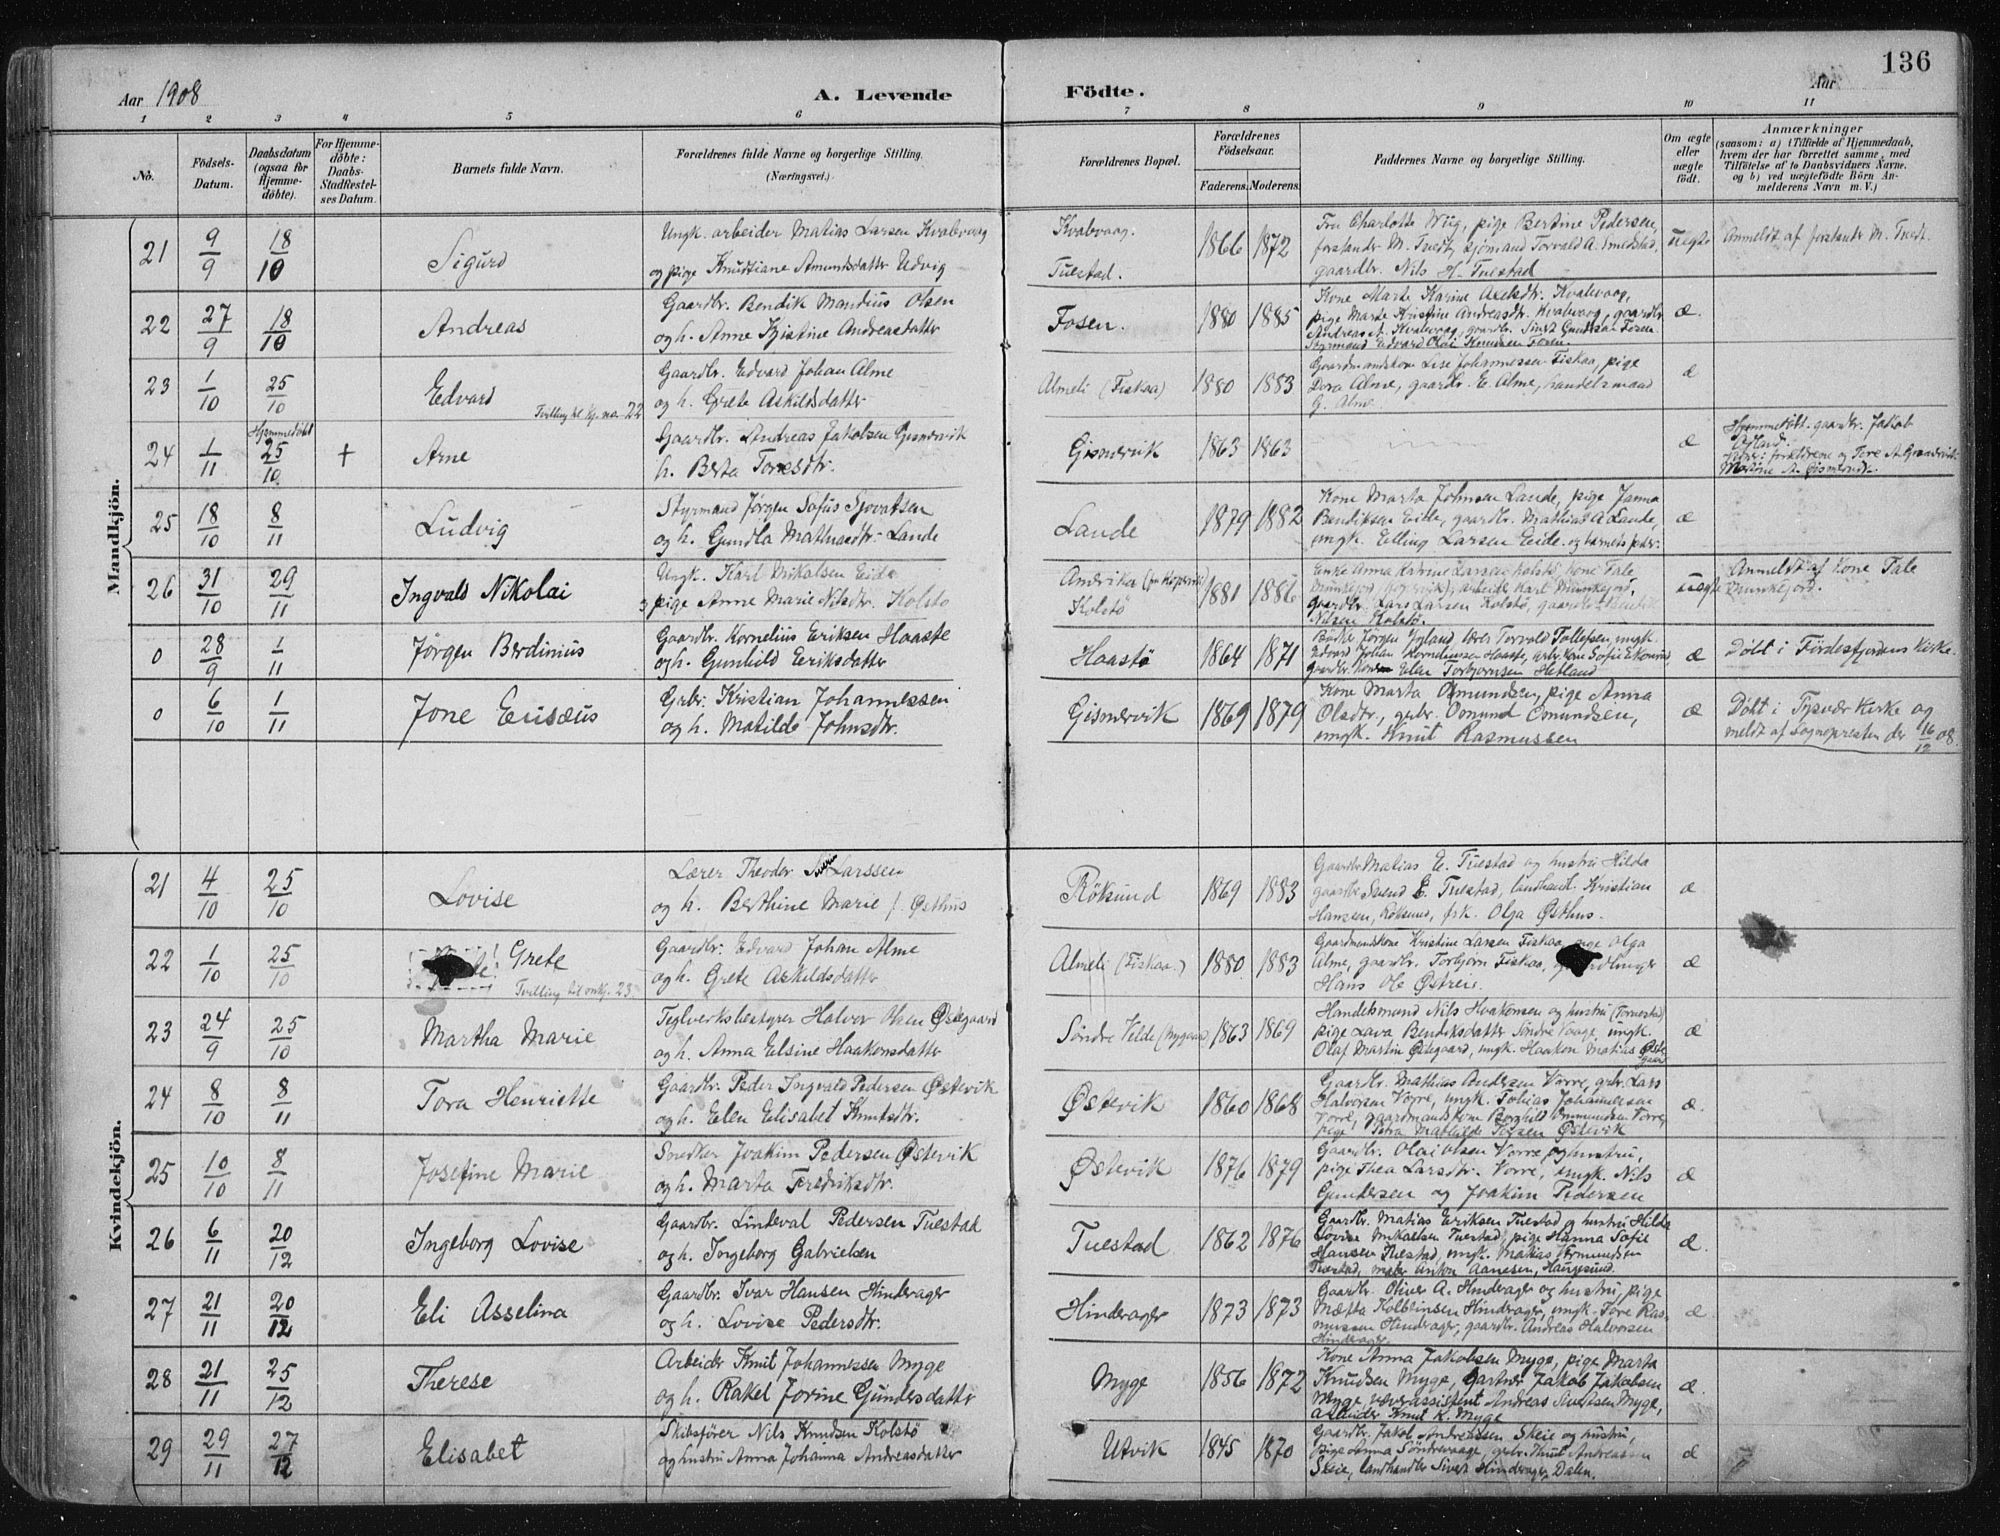 136
Aar 1908
A. Levende
Födte.
Aar
1 2 3 4 5 6 7 8 9 10 11
No.
Födsels-Datum.
Daabsdatum (ogsaa for Hjemme-döbte).
For Hjemme-döbte: Daabs-Stadfæstel-ses Datum.
Barnets fulde Navn.
Forældrenes fulde Navne og borgerlige Stilling.
(Næringsvei.)
Forældrenes Bopæl.
Forældrenes Födselsaar.
Faderens. Moderens.
Faddernes Navne og borgerlige Stilling.
Om ægte eller uægte födt.
Anmærkninger
(saasom: a) i Tilfælde af Hjemmedaab,
hvem der har forrettet samme, med
Tilföielse af to Daabsvidners Navne,
og b) ved uægtefödte Börn An-
melderens Navn m. V.)
Mandkjön.
21 9/9 18/10 Sigurd
Ungk. arbeider Matias Larsen Kvalevaag
og pige Knudtiane Amundsdatter Udvig
Kvalevaag.
Tuestad.
1866 1872
Fru Charlotte Wiig, pige Bertine Pedersen,
forstander M. Tvedt, sjömand Torvald A. Smedstad,
gaardbr. Nils H. Tuestad
uægte
Anmeldt af forstander M. Tvedt.
22 27/9 18/10 Andreas
Gaardbr. Bendik Mandius Olsen
og h. Anne Kristine Andreasdatter
Fosen. 1880 1885
Kone Marte Karine Axelsdtr. Kvalevaag,
pige Marte Kristine Andreasdr. Kvalevaag, gaardbr.
Andreas A. Kvalevaag, gaardbr. Sivert Fosen
Styrmand Edvard Olai Knudsen Fosen.
æ.
23 1/10 25/10 Edvard
Tvilling til kj. no. 22
Gaardbr. Edvard Johan Alme
og h. Grete Askildsdatter
Almeli (Fiskaa) 1880 1883
Gaardmandskone Lise Johannessen Fiskaa, pige
Dora Alme, gaardbr. E. Alme, handelsmand
G. Alme.
æ
24 1/11 Hjemmedöbt 25/10 + Arne
Gaardbr. Andreas Jakobsen Gismervik
h. Berta Toresdtr.
Gismervik 1863 1863
æ
Hjemmedöbt. gaardbr. Jakob
forældrene og Tore A. Gismervik
25 18/10 8/11 Ludvig
Styrmand Jørgen Sofus Sjovatsen
og h. Gundla Mathiasdtr. Lande
Lande 1879 1882
Kone Marta Johnsen Lande, pige Janna
Bendiksen Eide, gaardbr. Mathias A. Lande,
ungk. Elling Larsen Eide og barnets fader.
æ
26 31/10 29/11 Ingvald Nikolai
Ungk. Karl Mikalsen Eide
og pige Anne Marie Nilsdtr. Kolstö
Kolstö
1881 1886
Enke Anna Katrine Larsen Kolstö, kone Tale
Munkejord, arbeider Karl Munkejord,
gaardbr. Lars Larsen Kolstö, gaardbr.
Nilsen Kolstö.
uægte
Anmeldt af Kone Tale
Munkejord.
0 28/9 1/11 Jørgen Berdinius
Gaardbr. Kornelius Eriksen Haastø
og h. Gunhild Eriksdatter
Haastø 1864 1871
Jørgen Lærer Torvald Tollefsen, ungk.
Edvard Johan Korneliussen Haastø,
gaardbr. Elen Torbjørnsen Hetland
æ
Döbt i Fördesfjordens kirke.
0 6/10 1/11 Jone Elisæus
Grbr. Kristian Johannessen
og h. Matilde Johnsdtr.
Gismervik 1869 1879
Kone Marta Osmundsen, pige Anna
Olsdtr., grbr. Osmund Osmundsen,
ungk. Knut Rasmussen
æ
Döbt i Tysvær Kirke og
meldt af Sognepresten der 16/12 08.
Kvindekjön.
21 4/10 25/10 Lovise
Lærer Theodor Larssen
og h. Berthine Marie f. Østhus
Röksund 1869 1883
Gaardbr. Matias E. Tuestad og hustru Hilda
gaardbr. Svend E. Tuestad, landhandl. Kristian
Hansen, Röksund, frk. Olga Østhus.
æ
22 1/10 25/10 Grete
Tvilling til mkj. 23.
Gaardbr. Edvard Johan Alme
og h. Grete Askildsdatter
Almeli (Fiskaa.) 1880 1883
Gaardmandskone Kristine Larsen Fiskaa, pige Olga
Alme, gaardbr. Torbjørn Fiskaa,
Hans Ole Østrem.
æ
23 24/9 25/10 Martha Marie
Teglverksbestyrer Halvor Olsen Østegaard
og h. Anna Elsine Haakonsdatter
Søndre Velde (Nygaard) 1863 1869
Handelsmand Nils Haakonsen og hustru (Tornestad)
pige Lava Bendiksdatter Söndre Vaage, ungk.
Olaf Martin Østegaard, ungk. Haakon Matias Østegaard
æ
24 8/10 8/11 Tora Henriette
Gaardbr. Peder Ingvald Pedersen Østevik
og h. Elen Elisabet Knutsdtr.
Østevik 1860 1868
Gaardbr. Mathias Andersen Vorre, grbr. Lars
Halvorsen Vorre, ungk. Tobias Johannessen
Vorre, gaardmandskone Berghild Ommundsen Vorre,
pige Petra Mathilde Østevik
æ.
25 10/10 8/11 Josefine Marie
Snedker Joakim Pedersen Østevik
og h. Marta Fredriksdtr.
Østevik 1876 1879
Gaardbr. Olai Olsen Vorre og hustru,
pige Thea Larsdtr. Vorre, ungk. Nils
Gundersen og Joakim Pedersen
æ
26 6/11 20/12 Ingeborg Lovise
Gaardbr. Lindeval Pedersen Tuestad
og h. Ingeborg Gabrielsen
Tuestad 1862 1876
Gaardbr. Matias Eriksen Tuestad og hustru Hilda
Lovise Mikaelsen Tuestad, pige Hanna Sofie
Hansen Tuestad, ungk. Matias
Tuestad, maler Anton Aanesen, Haugesund.
æ.
27 21/11 20/12 Eli Asselina
Gaardbr. Ivar Hansen Hinderager
og h. Lovise Pedersdtr.
Hinderager 1873 1873
Gaardbr. Oliver A. Hinderager og hustru, pige
Kolbeinsen Hinderager, ungk. Tore Ras-
mussen Hinderager, gaardbr. Andreas Halvorsen
Hinderager.
æ
28 21/11 25/12 Therese
Arbeider Knut Johannessen Myge
og h. Rakel Jorine Gundersdatter
Myge 1856 1872
Kone Anna Jakobsen Myge, pige Marta
Knudsen Myge, Gartner Jakob Jakobsen
Myge, Andreas Myge,
arbeider Knut K. Myge
æ.
29 29/11 27/12 Elisabet
Skibsfører Nils Knudsen Kolstø
og hustru Anna Johanna Andreasdatter
Utvik 1845 1870
Gaardbr. Jakob Andreassen Skeie og hustru,
pige Anna Söndrevaage, grbr. Knut Andreassen
Skeie, landhandler Sivert Hinderager, Dalen.
æ